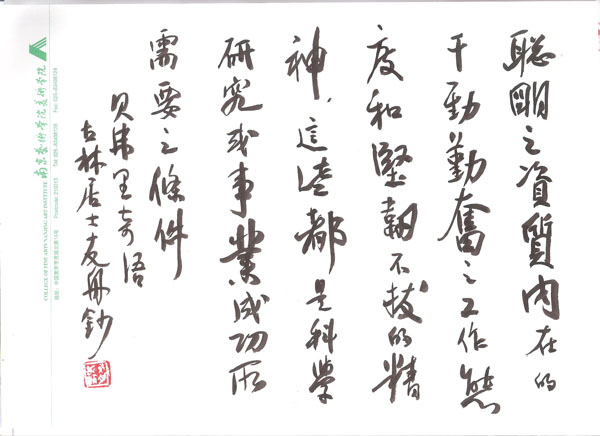 聪明之資質内在的
干勁勤奮之工作態
度和堅韌不拔的精
神，這些都是科學
研究或事業成功所
需要之條件
贝弗里奇語
古林居士友冊鈔
南京藝術学院美術学院
COLLEGE OF FINE ARTS NANJING ART INSTITUTE
Postcode: 210013